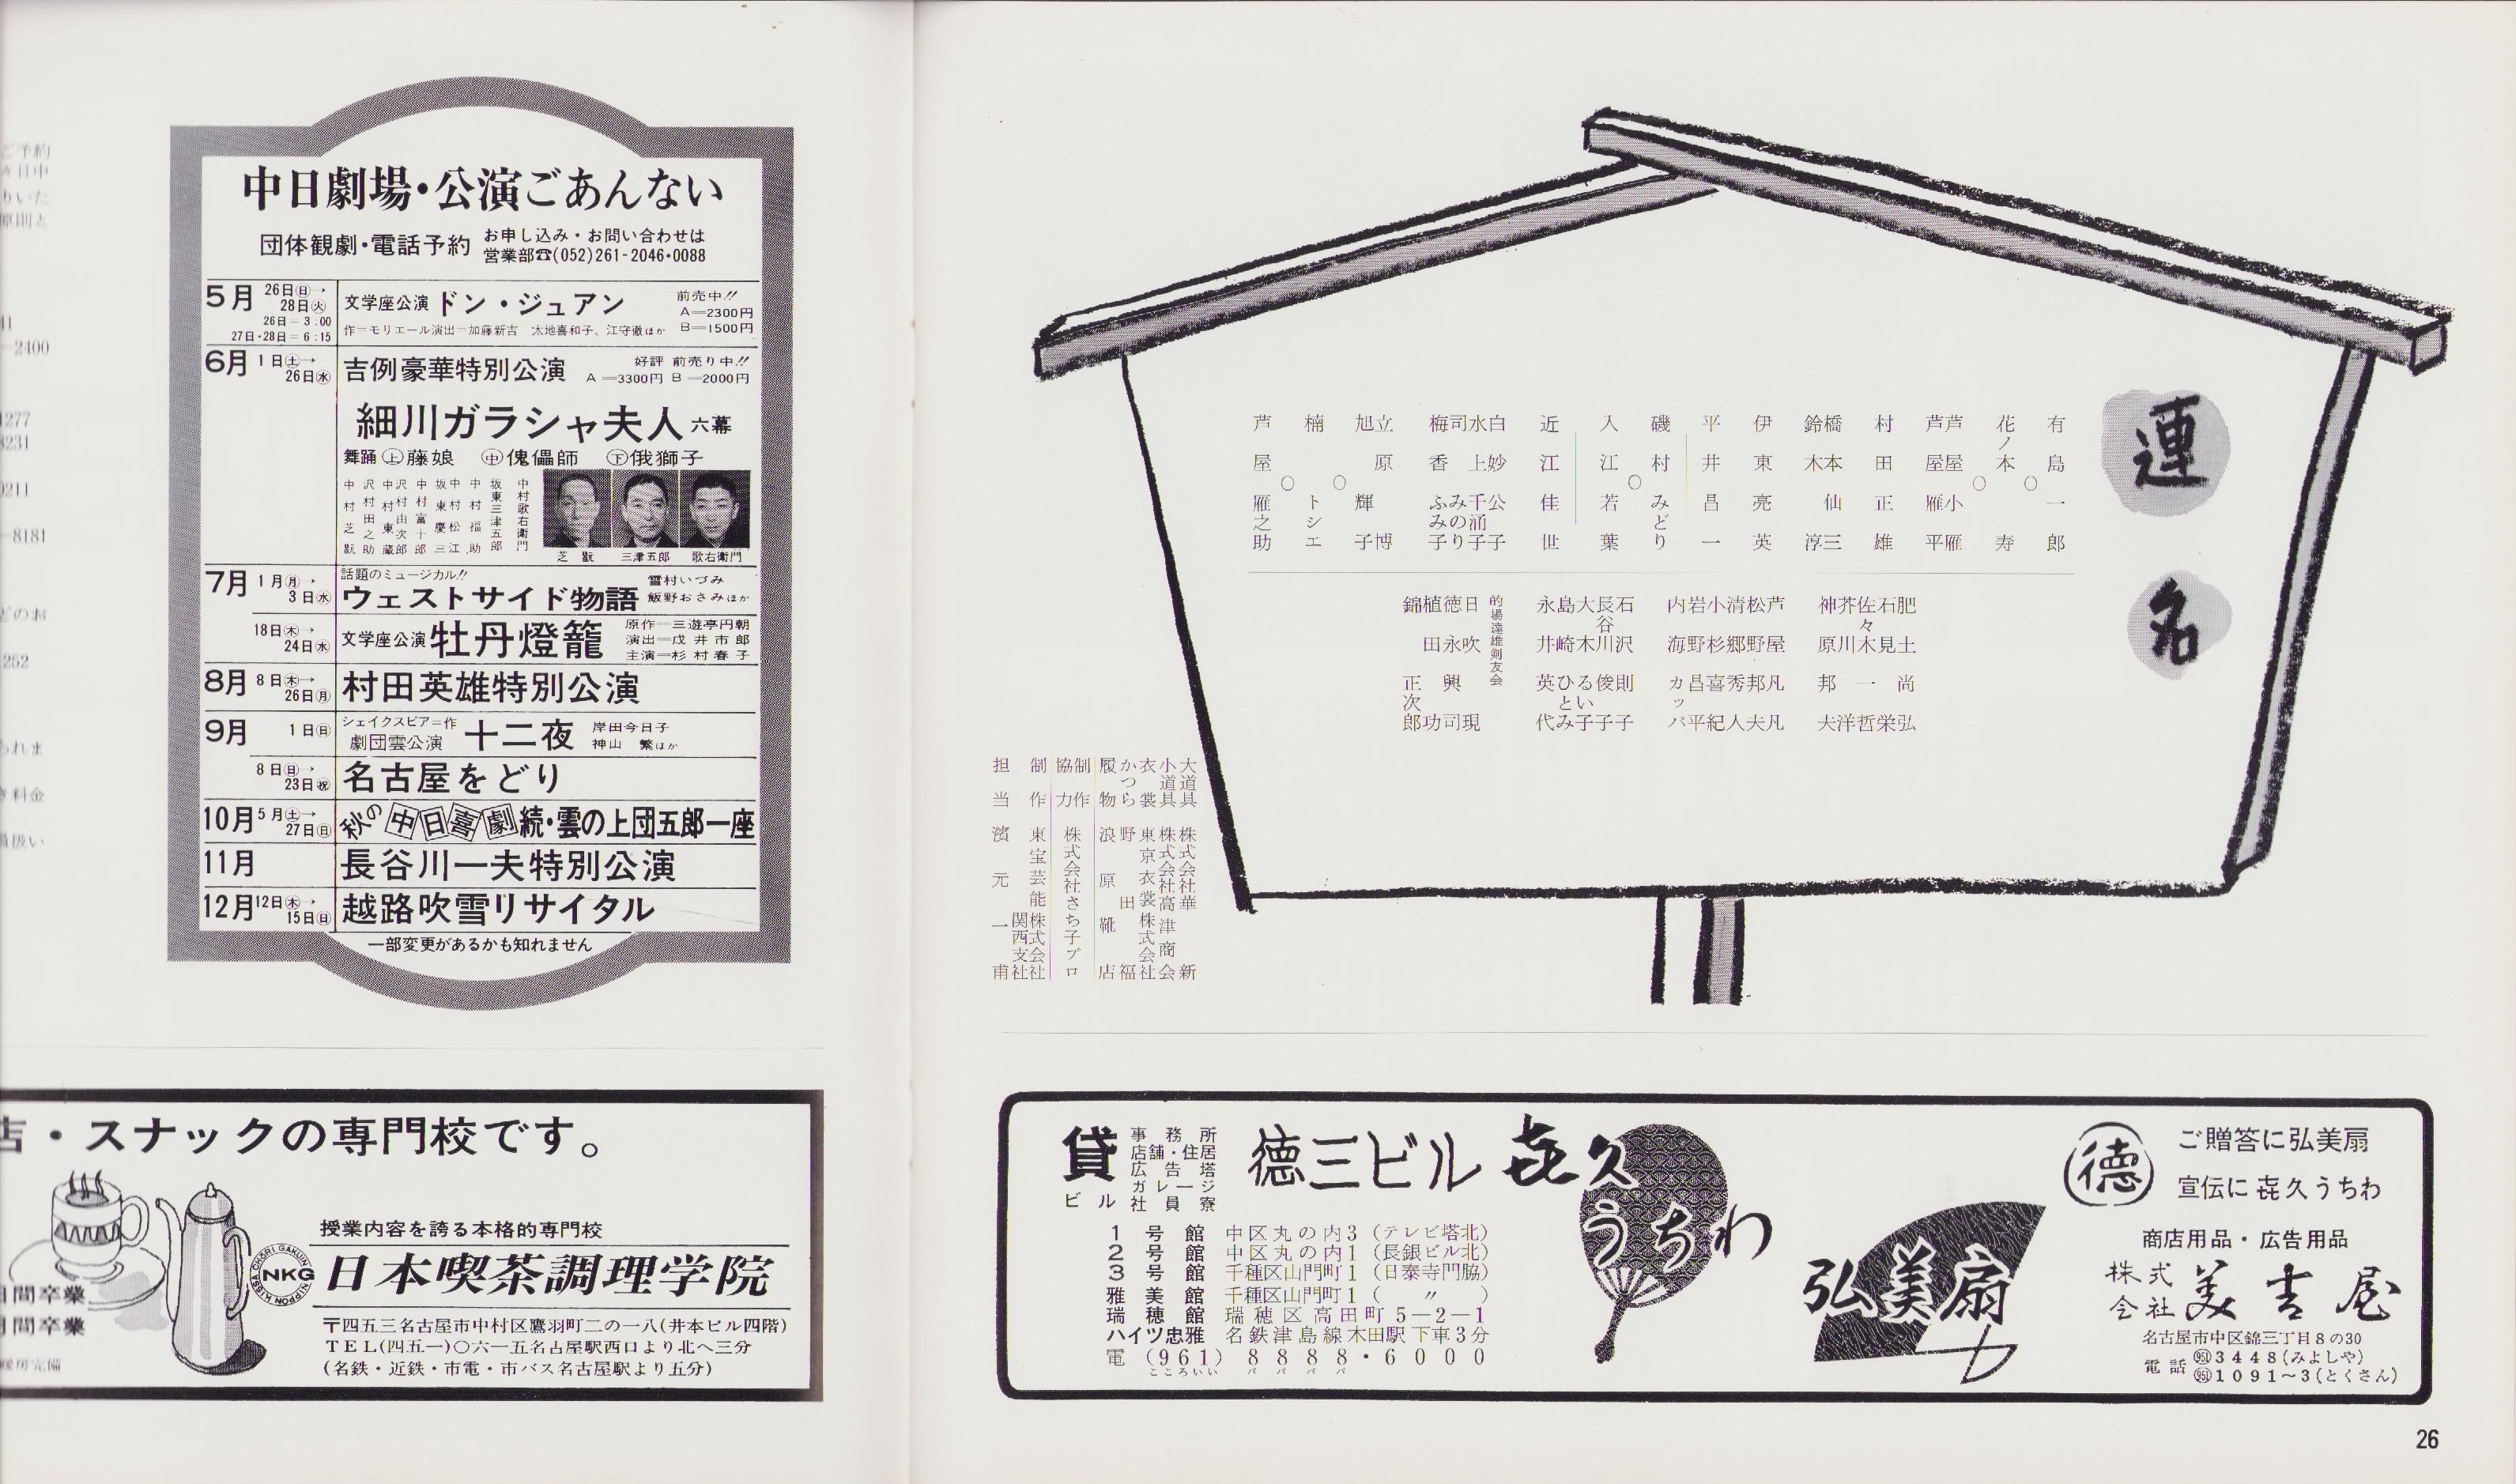 中日劇場・公演ごあんない
団体観劇・電話予約 お申し込み・お問い合わせは
営業部☎(052)261-2046・0088
5月 26日(日)→28日(火)
26日=3:00
27日・28日=6:15
文学座公演 ドン・ジュアン 前売中!!
A=2300円
B=1500円
作=モリエール演出=加藤新吉 太地喜和子、江守徹ほか
6月 1日(土)→26日(水)
吉例豪華特別公演 好評 前売り中!!
A=3300円 B=2000円
細川ガラシャ夫人 六幕
舞踊 (上)藤娘 (中)傀儡師 (下)俄獅子
中村歌右衛門
坂東三津五郎
中村福助
中村松江
坂東慶三
中村富十郎
沢村由次郎
中村東蔵
沢村田之助
中村芝翫
芝翫 三津五郎 歌右衛門
7月 1日(月)→3日(水)
話題のミュージカル!!
ウェストサイド物語 雪村いづみ
飯野おさみほか
18日(木)→24日(水)
文学座公演 牡丹燈籠
原作=三遊亭円朝
演出=戌井市郎
主演=杉村春子
8月 8日(木)→26日(月)
村田英雄特別公演
9月 1日(日)
シェイクスピア=作
劇団雲公演 十二夜 岸田今日子
神山 繁ほか
8日(日)→23日(祝)
名古屋をどり
10月 5日(土)→27日(日)
秋の中日喜劇 続・雲の上団五郎一座
11月 長谷川一夫特別公演
12月 12日(木)→15日(日)
越路吹雪リサイタル
一部変更があるかも知れません
店・スナックの専門校です。
授業内容を誇る本格的専門校
NKG
日本喫茶調理学院
〒四五三名古屋市中村区鷹羽町二の一八(井本ビル四階)
TEL(四五一)〇六一五名古屋駅西口より北へ三分
(名鉄・近鉄・市電・市バス名古屋駅より五分)
間卒業
間卒業
連名
有島一郎
○
花ノ本寿
○
芦屋小雁
芦屋雁平
村田正雄
橋本仙三
鈴木淳
伊東亮英
平井昌一
磯村みどり
○
入江若葉
近江佳世
白妙公子
水上千涌子
司みのり
梅香ふみ子
立原博
旭輝子
○
楠トシエ
○
芦屋雁之助
肥土尚弘
石見栄
佐々木一哲
芥川洋
神原邦夫
芦屋凡凡
松野邦夫
清郷秀人
小杉喜紀
岩野昌平
内海カッパ
石沢則子
長谷川俊子
大木るい子
島崎ひとみ
永井英代
的場達雄剣友会
日吹現
徳永興司
植田功
錦正次郎
大道具 株式会社華新
小道具 株式会社高津商会
衣裳 東京衣裳株式会社
かつら 野田福
履物 浪原靴店
制作協力 株式会社さち子プロ
制作 東宝芸能株式会社
関西支社
担当 濱元一甫
貸ビル
事務所
店舗・住居
広告塔
ガレージ
社員寮
徳三ビル
1号館 中区丸の内3(テレビ塔北)
2号館 中区丸の内1(長銀ビル北)
3号館 千種区山門町1(日泰寺門脇)
雅美館 千種区山門町1(〃)
瑞穂館 瑞穂区高田町5―2―1
ハイツ忠雅 名鉄津島線木田駅下車3分
電(961)8888・6000
こころいい パパパパ
㐂久うちわ
弘美扇
徳
ご贈答に弘美扇
宣伝に㐂久うちわ
商店用品・広告用品
株式会社 美吉屋
名古屋市中区錦三丁目8の30
電話 (951)3448(みよしや)
(951)1091~3(とくさん)
26